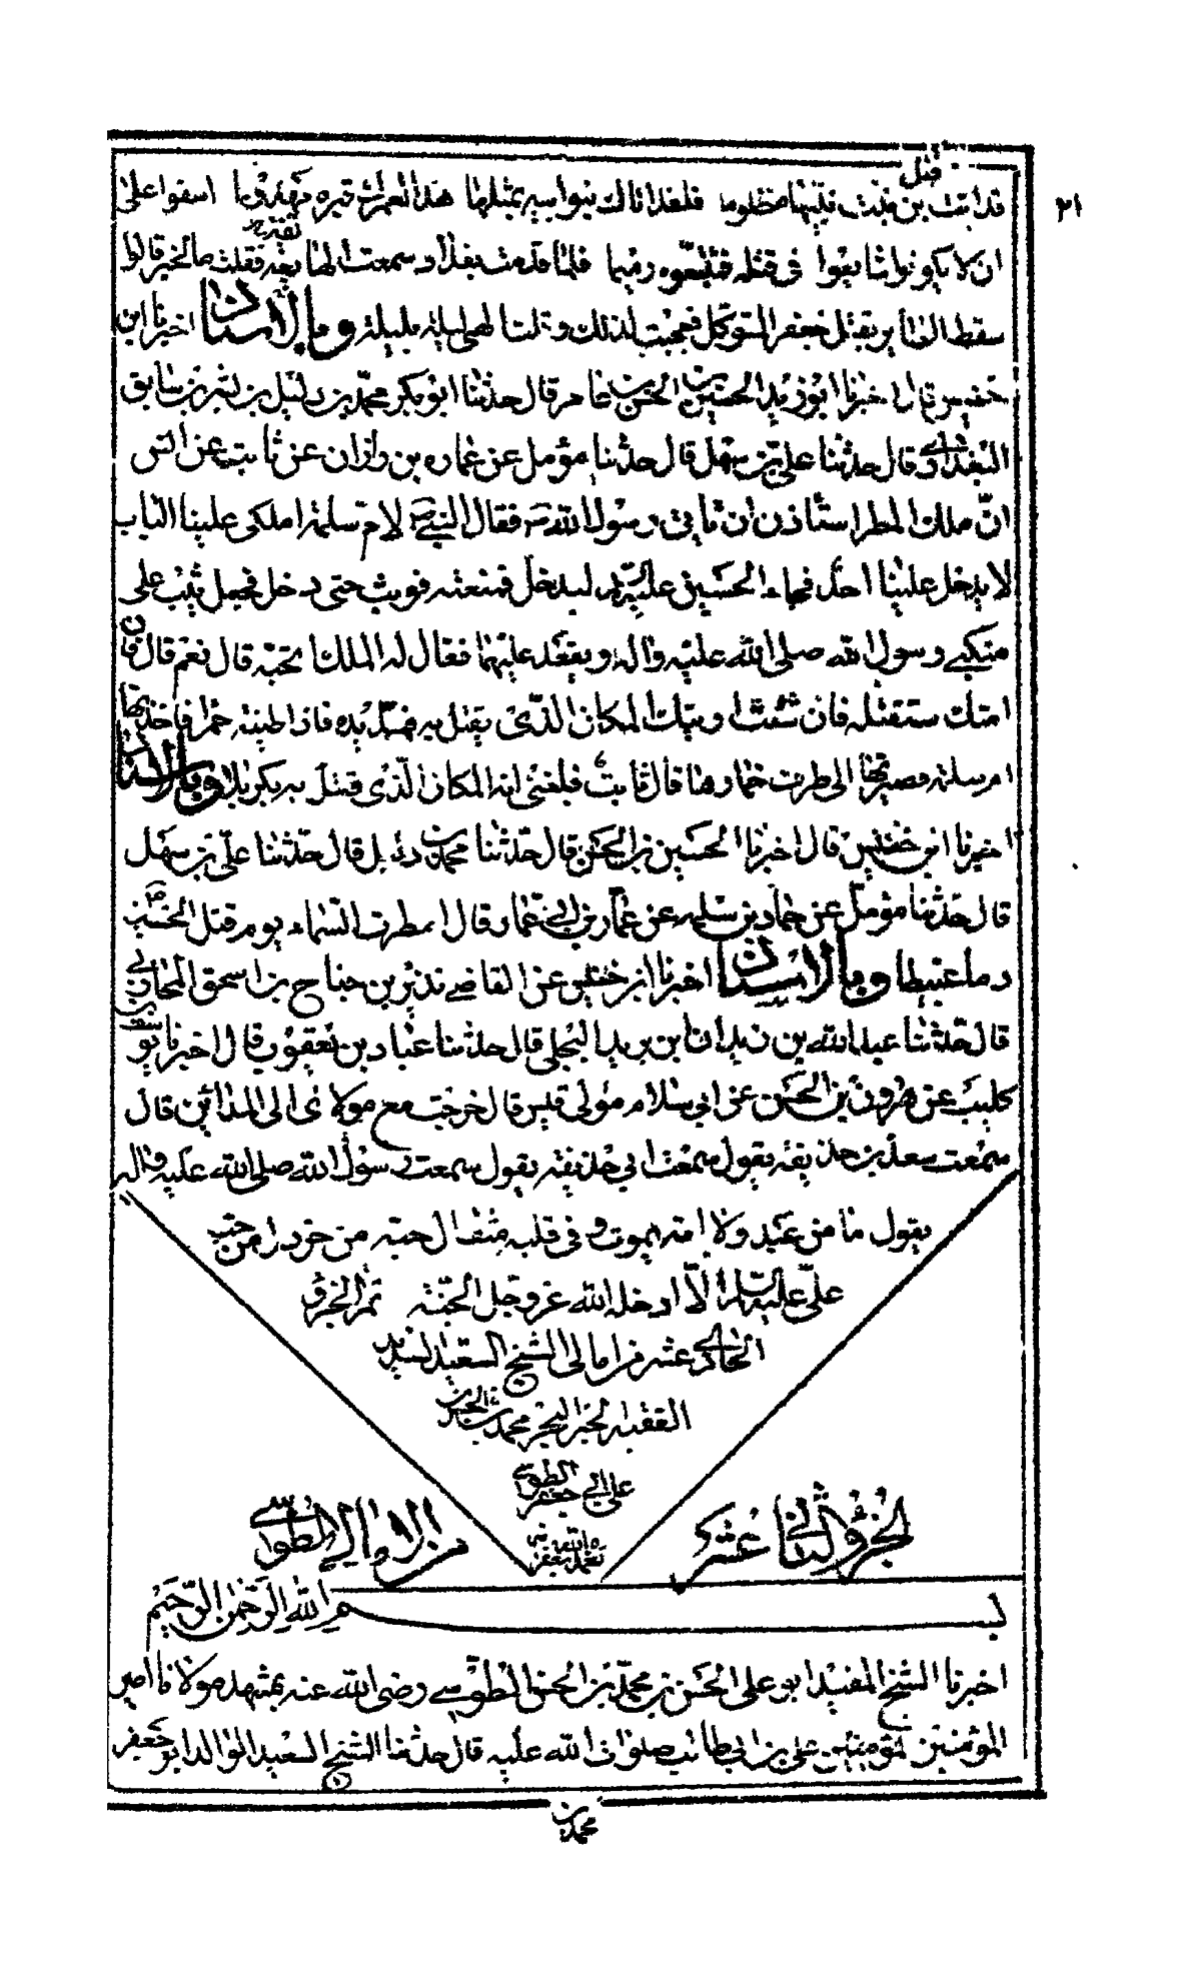 ٢١
قتل
قد اتت بن بنت نبيها مظلوما فلقد اتاك بنو ابيه بمثلها هذا لعمرك قبره مهدوما اسفوا على
ان لا يكونوا شايعوا في قتله فتتبعوه رميما فلما قدمت بغداد سمعت الهايعه فقلت ما الخبر قالوا
سقط الطائر بقتل جعفر المتوكل فعجبت لذلك وقلت الهى ليلة بليلة وبالاسناد اخبرنا ابن
خنيس قال اخبرنا ابو زيد الحسين بن الحسن بن عامر قال حدثنا ابو بكر محمد بن دليل بن بشر بن سابق
البغدادى قال حدثنا على بن سهل قال حدثنا مؤمل عن عماره بن زاذان عن ثابت عن انس
ان ملك المطر استاذن ان ياتى رسول الله ص فقال النبي ص لام سلمة املكى علينا الباب
لا يدخل علينا احد فجاء الحسين عليه السلام ليدخل فمنعته فوثب حتى دخل فجعل يثب على
منكبي رسول الله صلى الله عليه واله ويقعد عليهما فقال له الملك اتحبه قال نعم قال فان
امتك ستقتله فان شئت اريتك المكان الذى يقتل به فمد يده فاذا طينة حمرا فاخذتها
ام سلمة فصيرتها الى طرف خمارها قال ثابت فبلغنى انه المكان الذى قتل به بكربلا وبالاسناد
اخبرنا ابن خنيس قال اخبرنا الحسين بن الحسن قال حدثنا محمد بن دليل قال حدثنا على بن سهل
قال حدثنا مؤمل عن حماد بن سلمه عن عمار بن ابي عمار قال امطرت السماء يوم قتل الحسين
دما عبيطا وبالاسناد اخبرنا ابن خنيس عن القاضي نذير بن جناح بن اسحق المحاربي
قال حدثنا عبد الله بن زيدان بن بريد البجلى قال حدثنا عباد بن يعقوب قال اخبرنا يونس بن
كليب عن هرون بن الحسن عن ابي سلام مولى قيس قال خرجت مع مولاى الى المدائن قال
سمعت سعد بن حذيفه يقول سمعت ابي حذيفه يقول سمعت رسول الله صلى الله عليه واله
يقول ما من عبد ولا امة يموت وفى قلبه مثقال حبة من خردل من حب
علي عليه السلام الا ادخله الله عز وجل الجنة تم الجزء
الحادى عشر من امالى الشيخ السعيد السديد
الفقيه الحبر البحر محمد بن الحسن بن
على ابي جعفر الطوسي
الجزء الثاني عشر من الامالي للطوسي
بسم الله الرحمن الرحيم
اخبرنا الشيخ المفيد ابو على الحسن بن محمد بن الحسن الطوسي رضى الله عنه بمشهد مولانا امير
المؤمنين على بن ابي طالب صلوات الله عليه قال حدثنا الشيخ السعيد الوالد ابو جعفر
محمد بن